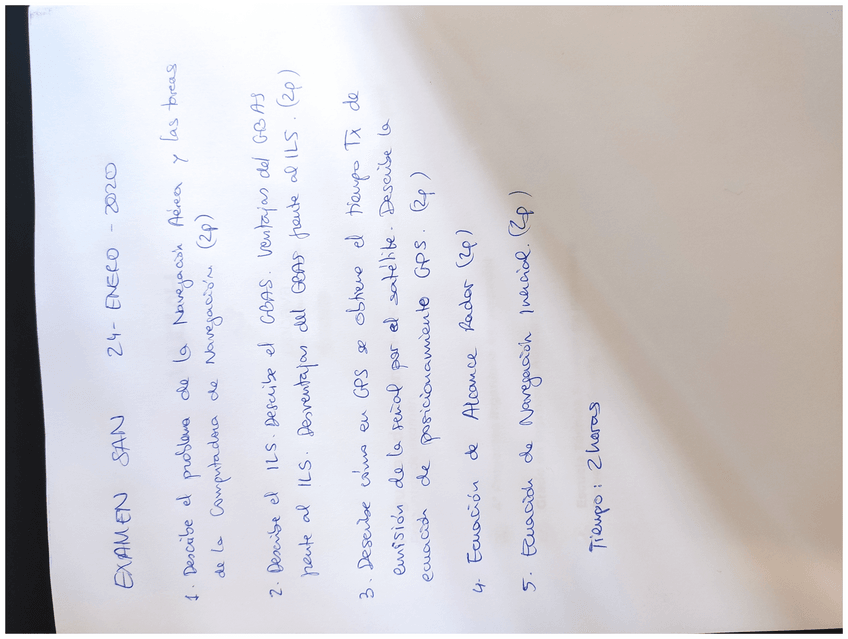 EXAMEN SAN 24-ENERO-2020
1. Describe el problema de la Navegación Aérea y las tareas
de la Computadora de Navegación (2p)
2. Describe el ILS. Describe el GBAS. Ventajas del GBAS
frente al ILS. Desventajas del GBAS frente al ILS. (2p)
3. Describe cómo en GPS se obtiene el tiempo Tx de
emisión de la señal por el satélite. Describe la
ecuación de posicionamiento GPS. (2p)
4. Ecuación de Alcance Radar (2p)
5. Ecuación de Navegación Inercial. (2p)
Tiempo: 2 horas